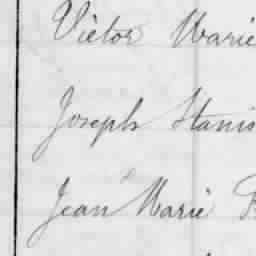 Victor Marie
Joseph Stanis
Jean Marie